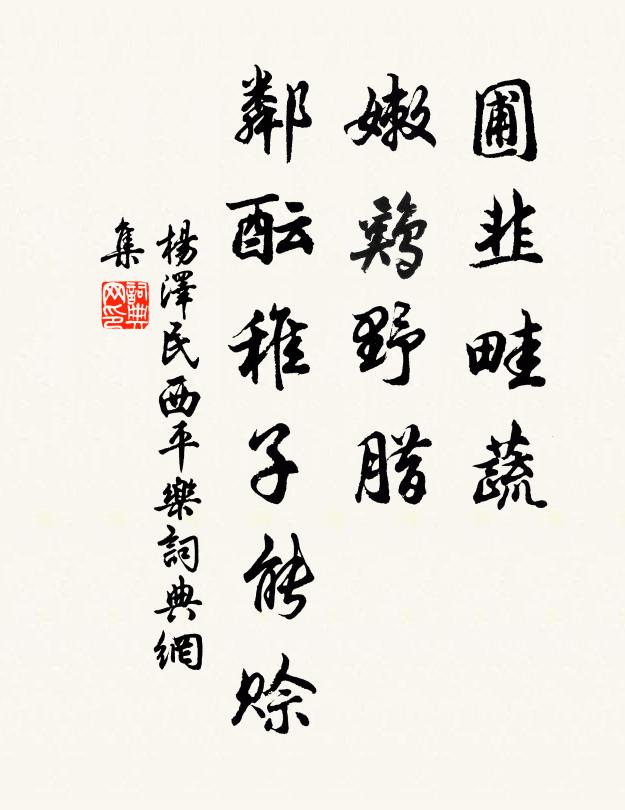 圃韭畦蔬
嫩鷄野腊
鄰酝稚子能賒
楊澤民西平樂詞典網
集
詞典
网印